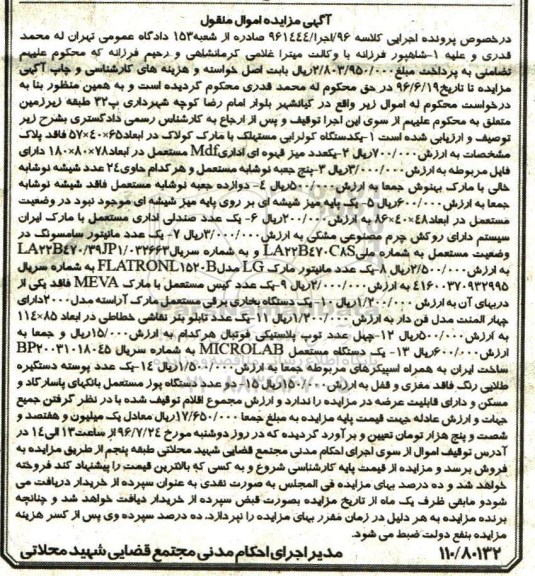 آگهی مزایده اموال منقول
درخصوص پرونده اجرایی کلاسه ۹۶/اجرا/۹۶۱۴۴۴ صادره از شعبه۱۵۳ دادگاه عمومی تهران له محمد
قدری و علیه ۱-شاهپور فرزانه با وکالت میترا غلامی کرمانشاهی و رحیم فرزانه که محکوم علیهم
تضامنی به پرداخت مبلغ۲/۸۰۳/۹۵۰/۰۰۰ریال بابت اصل خواسته و هزینه های کارشناسی و چاپ آگهی
مزایده تا تاریخ۹۶/۶/۱۹ در حق محکوم له محمد قدری محکوم گردیده است و به همین منظور بنا به
درخواست محکوم له اموال زیر واقع در کیانشهر بلوار امام رضا کوچه شهرداری پ۳۲ طبقه زیرزمین
متعلق به محکوم علیهم از سوی این اجرا توقیف و پس از ارجاع به کارشناس رسمی دادگستری بشرح زیر
توصیف و ارزیابی شده است ۱-یکدستگاه کولرآبی مستهلک با مارک کولاک در ابعاد۶۵×۴۰×۵۷ فاقد پلاک
مشخصات به ارزش۷۰۰/۰۰۰ریال ۲-یکعدد میز قهوه ای اداریMdf مستعمل در ابعاد۷۸×۸۰×۱۸۰ دارای
فایل مربوطه به ارزش۳/۰۰۰/۰۰۰ریال ۳-پنج جعبه نوشابه مستعمل و هرکدام حاوی۲۴ عدد شیشه نوشابه
خالی با مارک بهنوش جمعا به ارزش۵۰۰/۰۰۰ریال ۴- دوازده جعبه نوشابه مستعمل فاقد شیشه نوشابه
جمعا به ارزش۶۰۰/۰۰۰ریال ۵- یک پایه میز شیشه ای بر روی پایه میز شیشه ای موجود نبود در وضعیت
مستعمل در ابعاد۴۸×۴۰×۸۶ به ارزش۲۰۰/۰۰۰ریال ۶- یک عدد صندلی اداری مستعمل با مارک ایران
سیستم دارای روکش چرم مصنوعی مشکی به ارزش۳/۰۰۰/۰۰۰ریال ۷- یک عدد مانیتور سامسونگ در
وضعیت مستعمل به شماره ملیLA۲۲B۴۷۰C۸S و به شماره سریالLA۲۲B۴۷۰/۳۹JP۱/۰۳۲۶۶۳
به ارزش۲/۵۰۰/۰۰۰ریال ۸-یک عدد مانیتور مارک LG مدلFLATRONL۱۵۲۰B به شماره سریال
۴۱۶۰۰۳۷۰۹۳۲۹۹۵ به ارزش۲/۰۰۰/۰۰۰ریال ۹-یک عدد کیس مستعمل با مارک MEVA فاقد یکی از
دربهای آن به ارزش۱/۲۰۰/۰۰۰ریال ۱۰-یک دستگاه بخاری برقی مستعمل مارک آراسته مدل۲۰۰۰دارای
چهار المنت مدل فن دار به ارزش۱/۲۰۰/۰۰۰ریال ۱۱-یک عدد تابلو بنر نقاشی خطاطی در ابعاد ۸۵×۱۱۴
به ارزش۵۰۰/۰۰۰ریال ۱۲-چهل عدد توپ پلاستیکی فوتبال هرکدام به ارزش۱۵/۰۰۰ریال و جمعا به
ارزش۶۰۰/۰۰۰ریال ۱۳- یک دستگاه مستعمل MICROLAB به شماره سریال BP۲۰۰۳۱۰۱۸۰۴۵
ساخت ایران به همراه اسپیکرهای مربوطه جمعا به ارزش۱/۵۰۰/۰۰۰ریال ۱۴-یک عدد پوسته دستگیره
طلایی رنگ فاقد مغزی و قفل به ارزش۱۵۰/۰۰۰ریال ۱۵- دو عدد دستگاه پوز مستعمل بانکهای پاسارگاد و
مسکن و دارای قابلیت عرضه در مزایده را ندارد و ارزش مجموع اقلام توقیف شده با در نظر گرفتن جمیع
جهات و ارزش عادله جهت قیمت پایه مزایده به مبلغ جمعا ۱۷/۶۵۰/۰۰۰ریال معادل یک میلیون و هفتصد و
شصت و پنج هزار تومان تعیین و برآورد گردیده که در روز دوشنبه مورخ ۹۶/۷/۲۴ از ساعت۱۳ الی۱۴ در
آدرس توقیف اموال از سوی اجرای احکام مدنی مجتمع قضایی شهید محلاتی طبقه پنجم از طریق مزایده به
فروش برسد و مزایده از قیمت پایه کارشناسی شروع و به کسی که بالاترین قیمت را پیشنهاد کند فروخته
خواهد شد و ده درصد بهای مزایده فی المجلس به صورت نقدی به عنوان سپرده از خریدار دریافت می
شودو مابقی ظرف یک ماه از تاریخ مزایده بصورت قبض سپرده از خریدار دیافت خواهد شد و چنانچه
برنده مزایده به هر دلیل در زمان مقرر بهای مزایده را نپردازد، ده درصد سپرده وی پس از کسر هزینه
مزایده بنفع دولت ضبط می شود.
۱۱۰/۸۰۱۳۲ مدیر اجرای احکام مدنی مجتمع قضایی شهید محلاتی